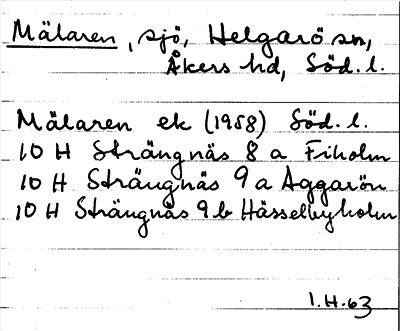 Mälaren, sjö, Helgarö sn,
Åkers hd, Söd. l.
Mälaren ek (1958) Söd. l.
10 H Strängnäs 8 a Fiholm
10 H Strängnäs 9 a Aggarön
10 H Strängnäs 9 b Hässelbyholm
1.H.63